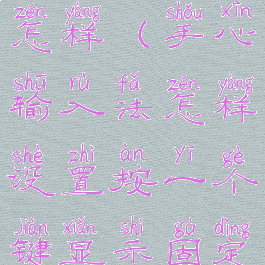 zěn yàng shǒu xīn
怎样（手心
shū rù fǎ zěn yàng
输入法怎样
shè zhì àn yī gè
设置按一个
jiàn xiǎn shì gù dìng
键显示固定